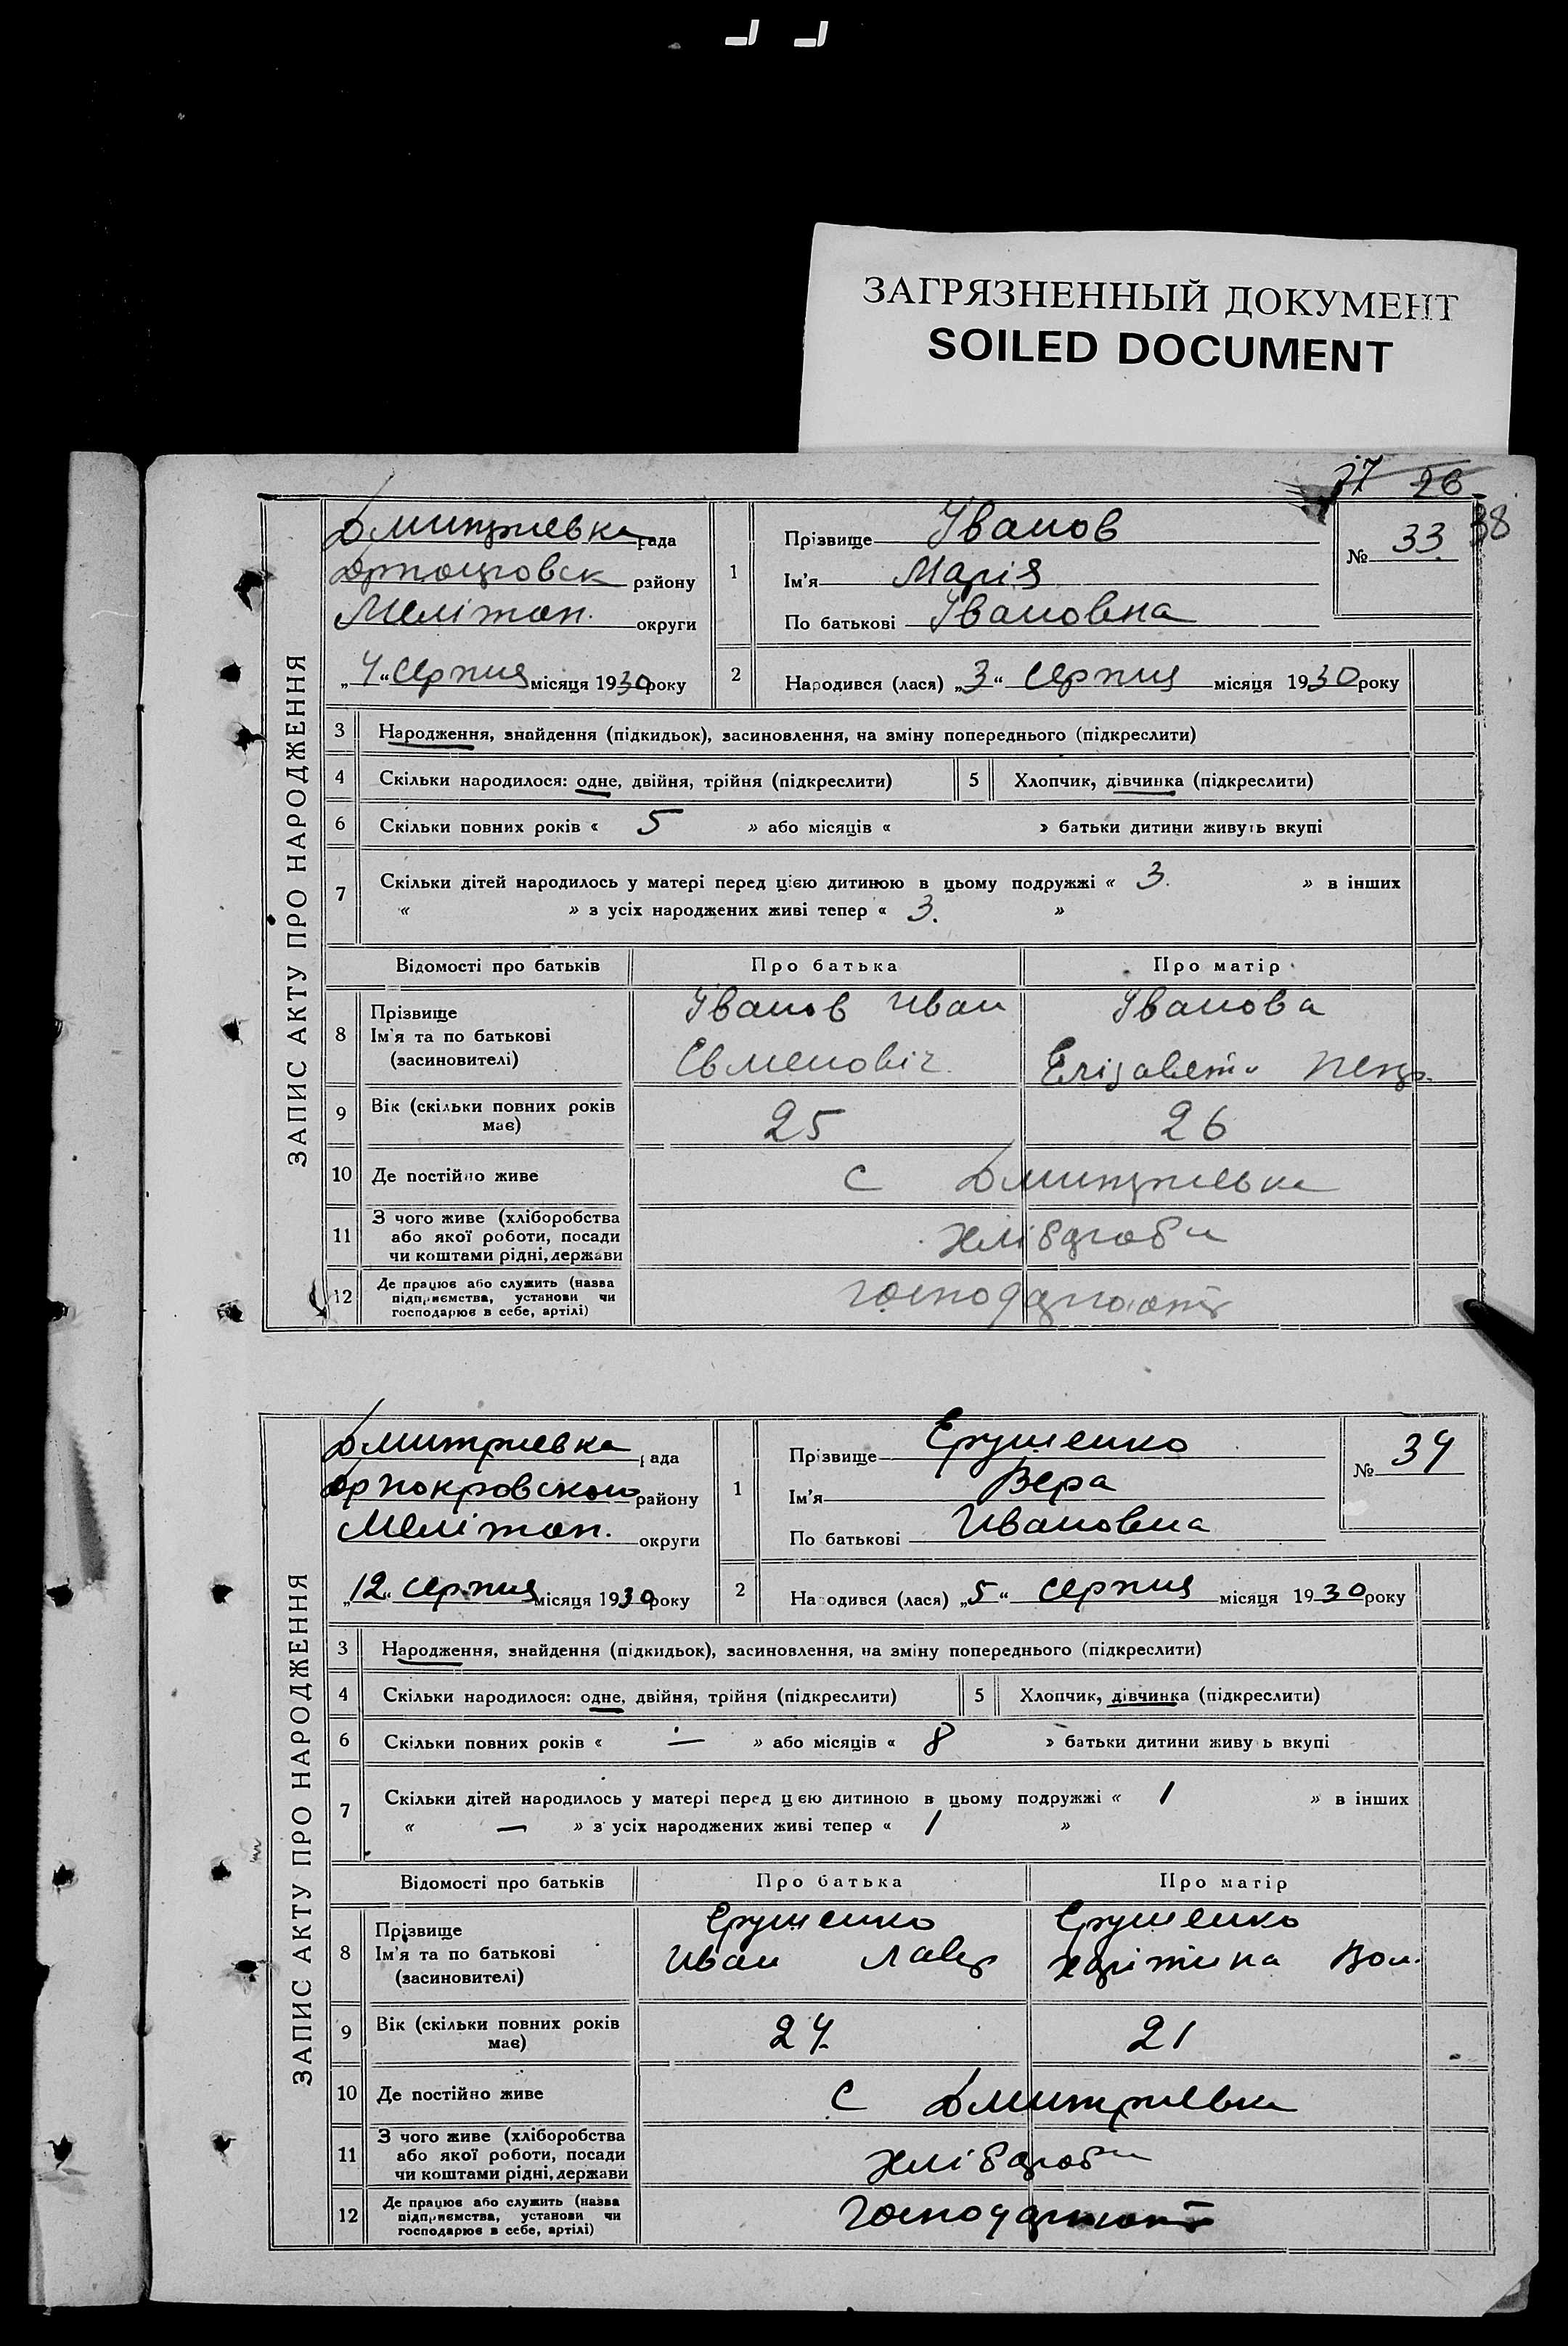 ЗАГРЯЗНЕННЫЙ ДОКУМЕНТ
SOILED DOCUMENT
37 26
38
ЗАПИС АКТУ ПРО НАРОДЖЕННЯ
Дмитриевка рада
району
Мелітоп. округи
„4“ Серпня місяця 1930 року
1
Прізвище Іванов
Ім'я Марія
По батькові Івановна
№ 33
2 Народився (лася) „3“ Серпня місяця 1930 року
3 Народження, знайдення (підкидьок), засиновлення, на зміну попереднього (підкреслити)
4 Скільки народилося: одне, двійня, трійня (підкреслити) 5 Хлопчик, дівчинка (підкреслити)
6 Скільки повних років « 5 » або місяців « » батьки дитини живуть вкупі
7 Скільки дітей народилось у матері перед цією дитиною в цьому подружжі « 3. » в інших
« » з усіх народжених живі тепер « 3. »
Відомості про батьків Про батька Про матір
8 Прізвище Ім'я та по батькові (засиновителі)
Іванов Иван Євменовіч
Іванова Елізавета Петр.
9 Вік (скільки повних років має) 25 26
10 Де постійно живе с Дмитриевка
11 З чого живе (хліборобства або якої роботи, посади чи коштами рідні, держави хлібороби
12 Де працює або служить (назва підприємства, установи чи господарює в себе, артілі)
ЗАПИС АКТУ ПРО НАРОДЖЕННЯ
Дмитриевка рада
району
Мелітоп. округи
„12“ серпня місяця 1930 року
1
Прізвище Ерушенко
Ім'я Вера
По батькові Ивановна
№ 34
2 Народився (лася) „5“ серпня місяця 1930 року
3 Народження, знайдення (підкидьок), засиновлення, на зміну попереднього (підкреслити)
4 Скільки народилося: одне, двійня, трійня (підкреслити) 5 Хлопчик, дівчинка (підкреслити)
6 Скільки повних років « — » або місяців « 8 » батьки дитини живуть вкупі
7 Скільки дітей народилось у матері перед цією дитиною в цьому подружжі « 1 » в інших
« — » з усіх народжених живі тепер « 1 »
Відомості про батьків Про батька Про матір
8 Прізвище Ім'я та по батькові (засиновителі)
Ерушенко Иван Лавр
Ерушенко Хрітина
9 Вік (скільки повних років має) 24 21
10 Де постійно живе с Дмитриевка
11 З чого живе (хліборобства або якої роботи, посади чи коштами рідні, держави хлібороби
12 Де працює або служить (назва підприємства, установи чи господарює в себе, артілі)